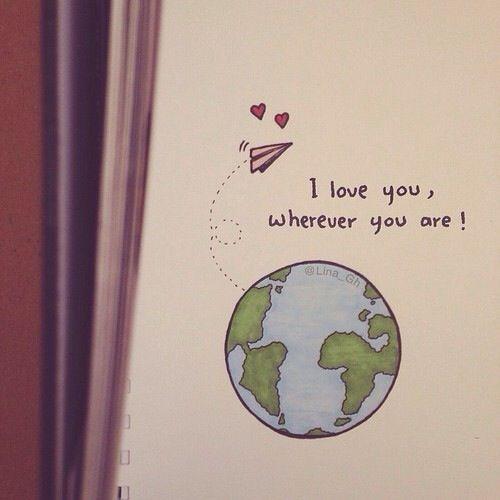 I love you,
wherever you are!
@Lina_Gh